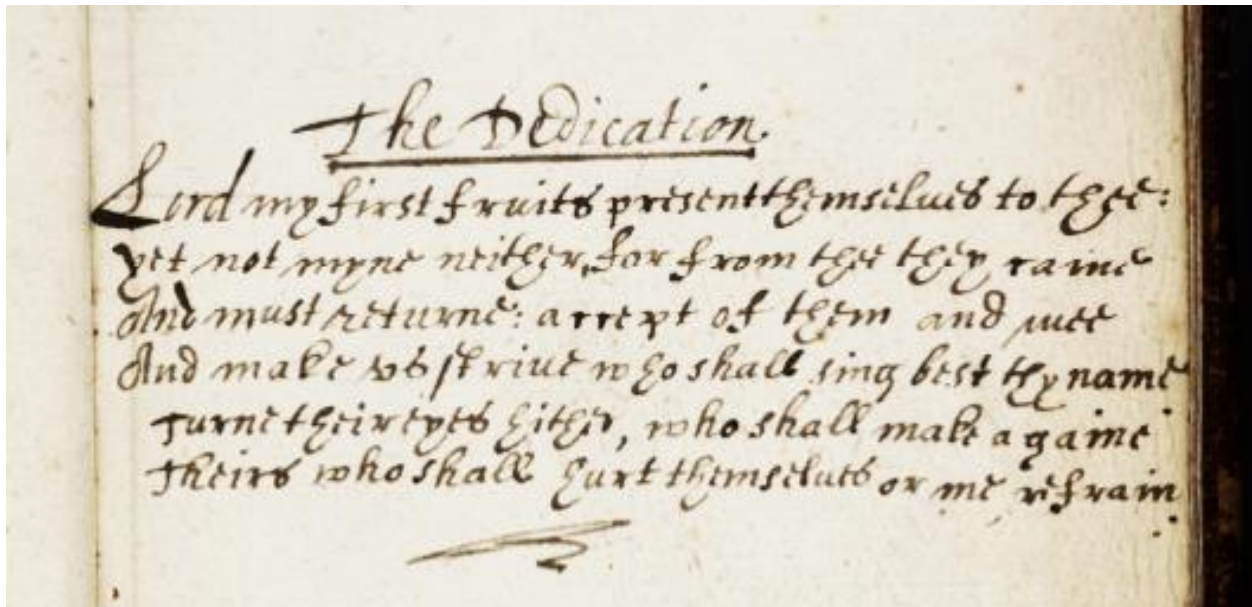 The Dedication.
Lord my first fruits present themselues to thee:
yet not myne neither, for from thee they came
And must returne: accept of them and mee
And make vs striue who shall sing best thy name
Turne their eyes hither, who shall make a gaine
Theirs who shall hurt themselues or me refrain.